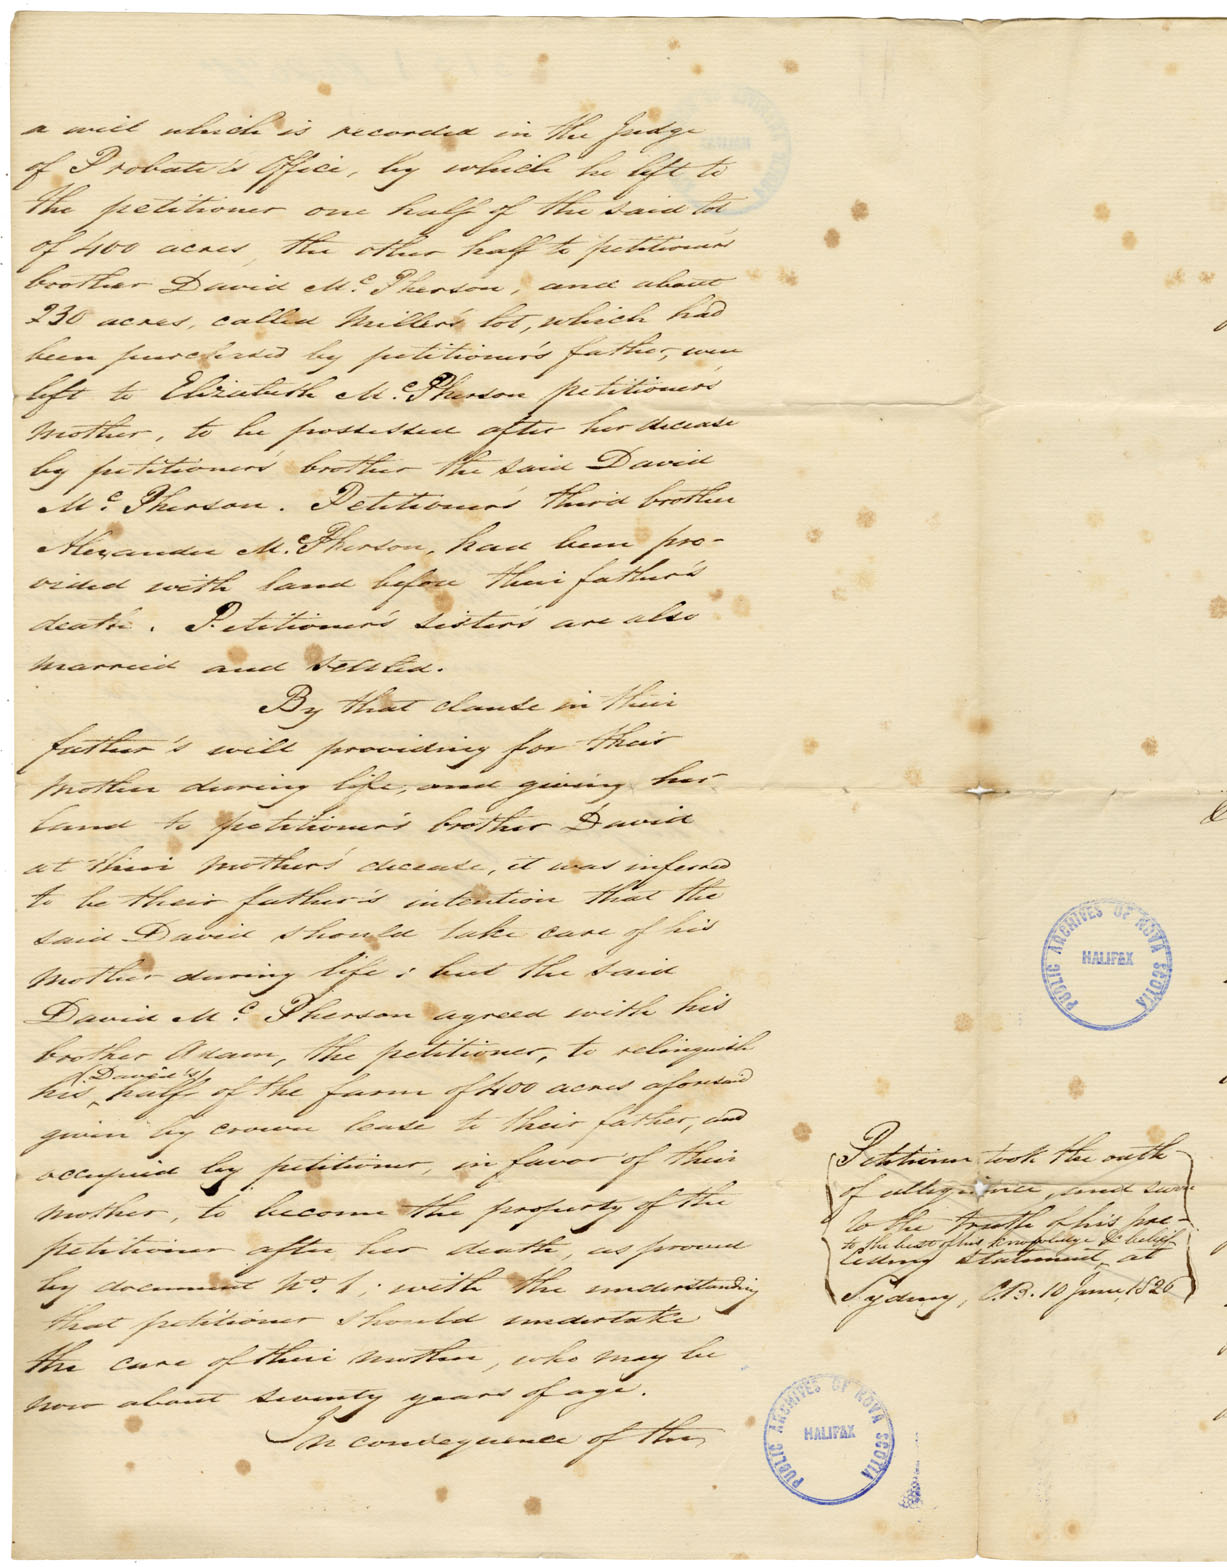 a will which is recorded in the Judge
of Probate's Office, by which he left to
the petitioner one half of the said lot
of 400 acres, the other half to petitioner's
brother David Mc. Pherson, and about
230 acres, called Miller's lot, which had
been purchased by petitioner's father, were
left to Elizabeth Mc. Pherson petitioner's
mother, to be possessed after her decease
by petitioners' brother the said David
Mc. Pherson. Petitioner's third brother
Alexander Mc. Pherson, had been pro-
vided with land before their father's
death. Petitioner's sisters are also
married and settled.
By that clause in their
father's will providing for their
mother during life, and giving her
land to petitioner's brother David
at their mother's decease, it was inferred
to be their father's intention that the
said David should take care of his
mother during life; but the said
David Mc. Pherson agreed with his
brother Adam, the petitioner, to relinquish
(David's)
his half of the farm of 400 acres aforesaid
given by crown lease to their father, and
occupied by petitioner, in favor of their
mother, to become the property of the
petitioner after her death, as proved
by document No. 1; with the understanding
that petitioner should undertake
the care of their mother, who may be
now about seventy years of age.
In consequence of the
PUBLIC ARCHIVES OF NOVA SCOTIA
HALIFAX
Petitioner took the oath
of allegiance, and swore
to the truth of his pre-
to the best of his knowledge & belief
ceding statement, at
Sydney, C.B. 10 June 1820
PUBLIC ARCHIVES OF NOVA SCOTIA
HALIFAX